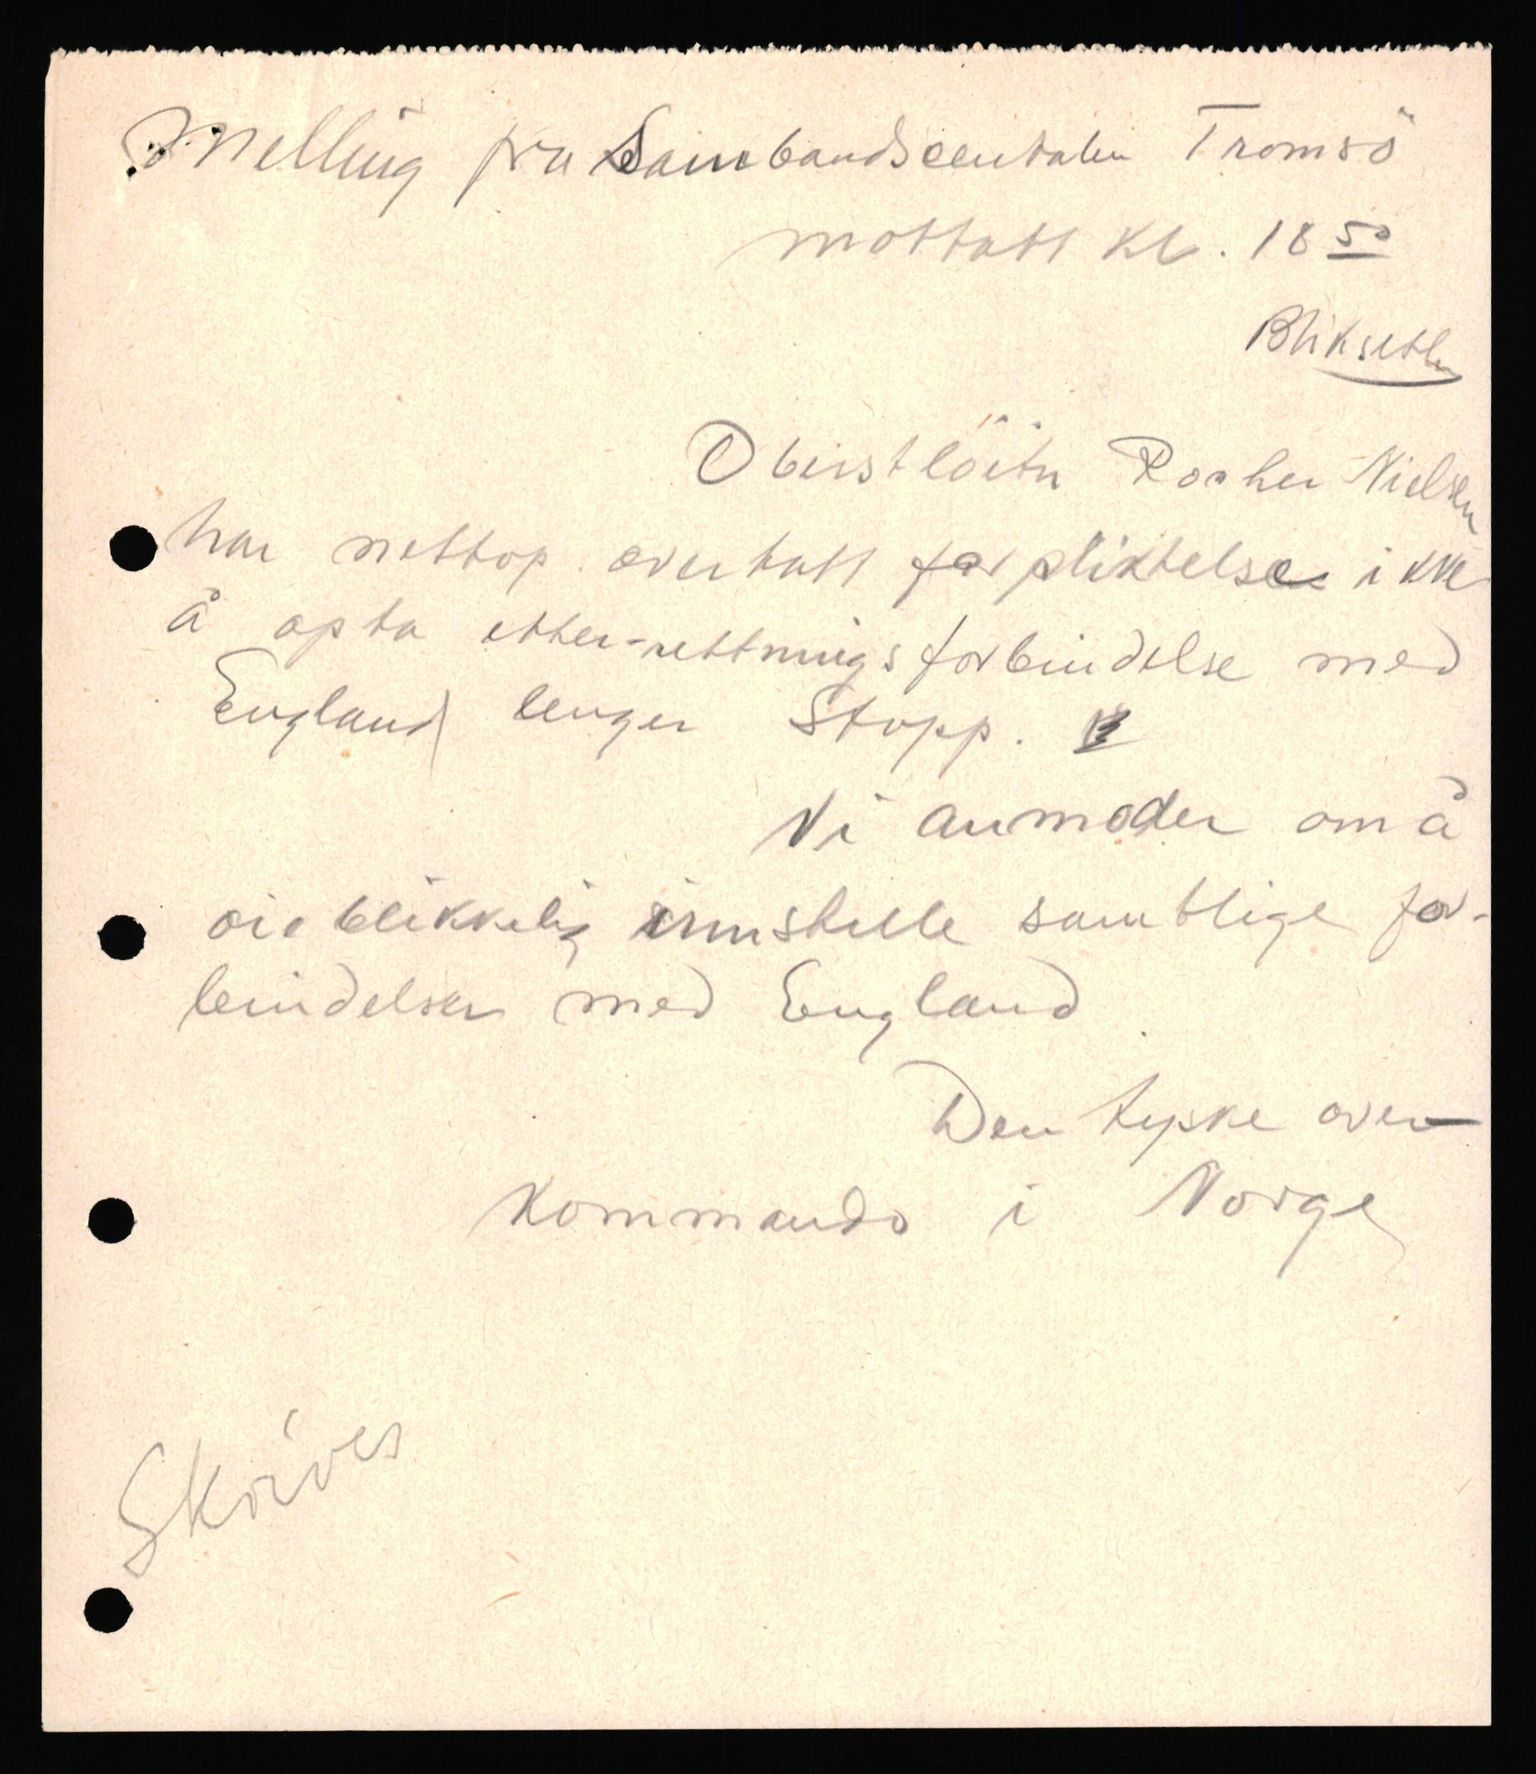 Melling fra Sambandscentalen Tromsö
mottatt kl. 18 50
Bliksetl
Oberstlöitn Roscher Nielsen
har nettop overtatt forpliktelse ikke
å opta etter-rettningsforbindelse med
England lenger Stopp.
Vi anmoder om å
øieblikkelig innstille samtlige for-
bindelser med England
Den tyske over-
kommando i Norge